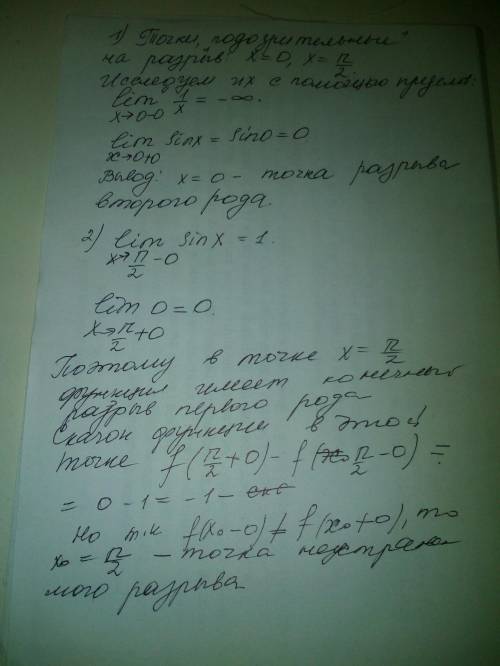 1) Точки, подозрительные
на разрыв: x=0, x=π/2
Исследуем их с помощью предела:
lim 1/x = -∞.
x→0-0
lim sinx = sin0=0
x→0+0
Вывод: x=0 - точка разрыва
второго рода.
2) lim sinx = 1.
x→π/2-0
lim 0 = 0.
x→π/2+0
Поэтому в точке x = π/2
функция имеет конечный
разрыв первого рода
Скачок функции в этой
точке f(π/2+0) - f(π/2-0) =
= 0-1 = -1 -
но т.к f(x₀-0) ≠ f(x₀+0), то
x₀ = π/2 - точка неустрани
мого разрыва